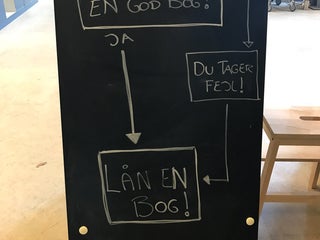 EN GOD BOG!
JA
DU TAGER
FEJL!
LÅN EN
BOG!